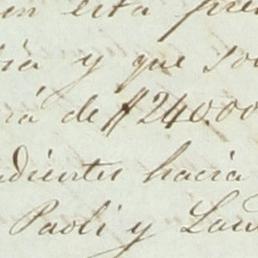 en esta pre
ia y que so
rá de $240.00
dientes hacia
Paoli y Lau